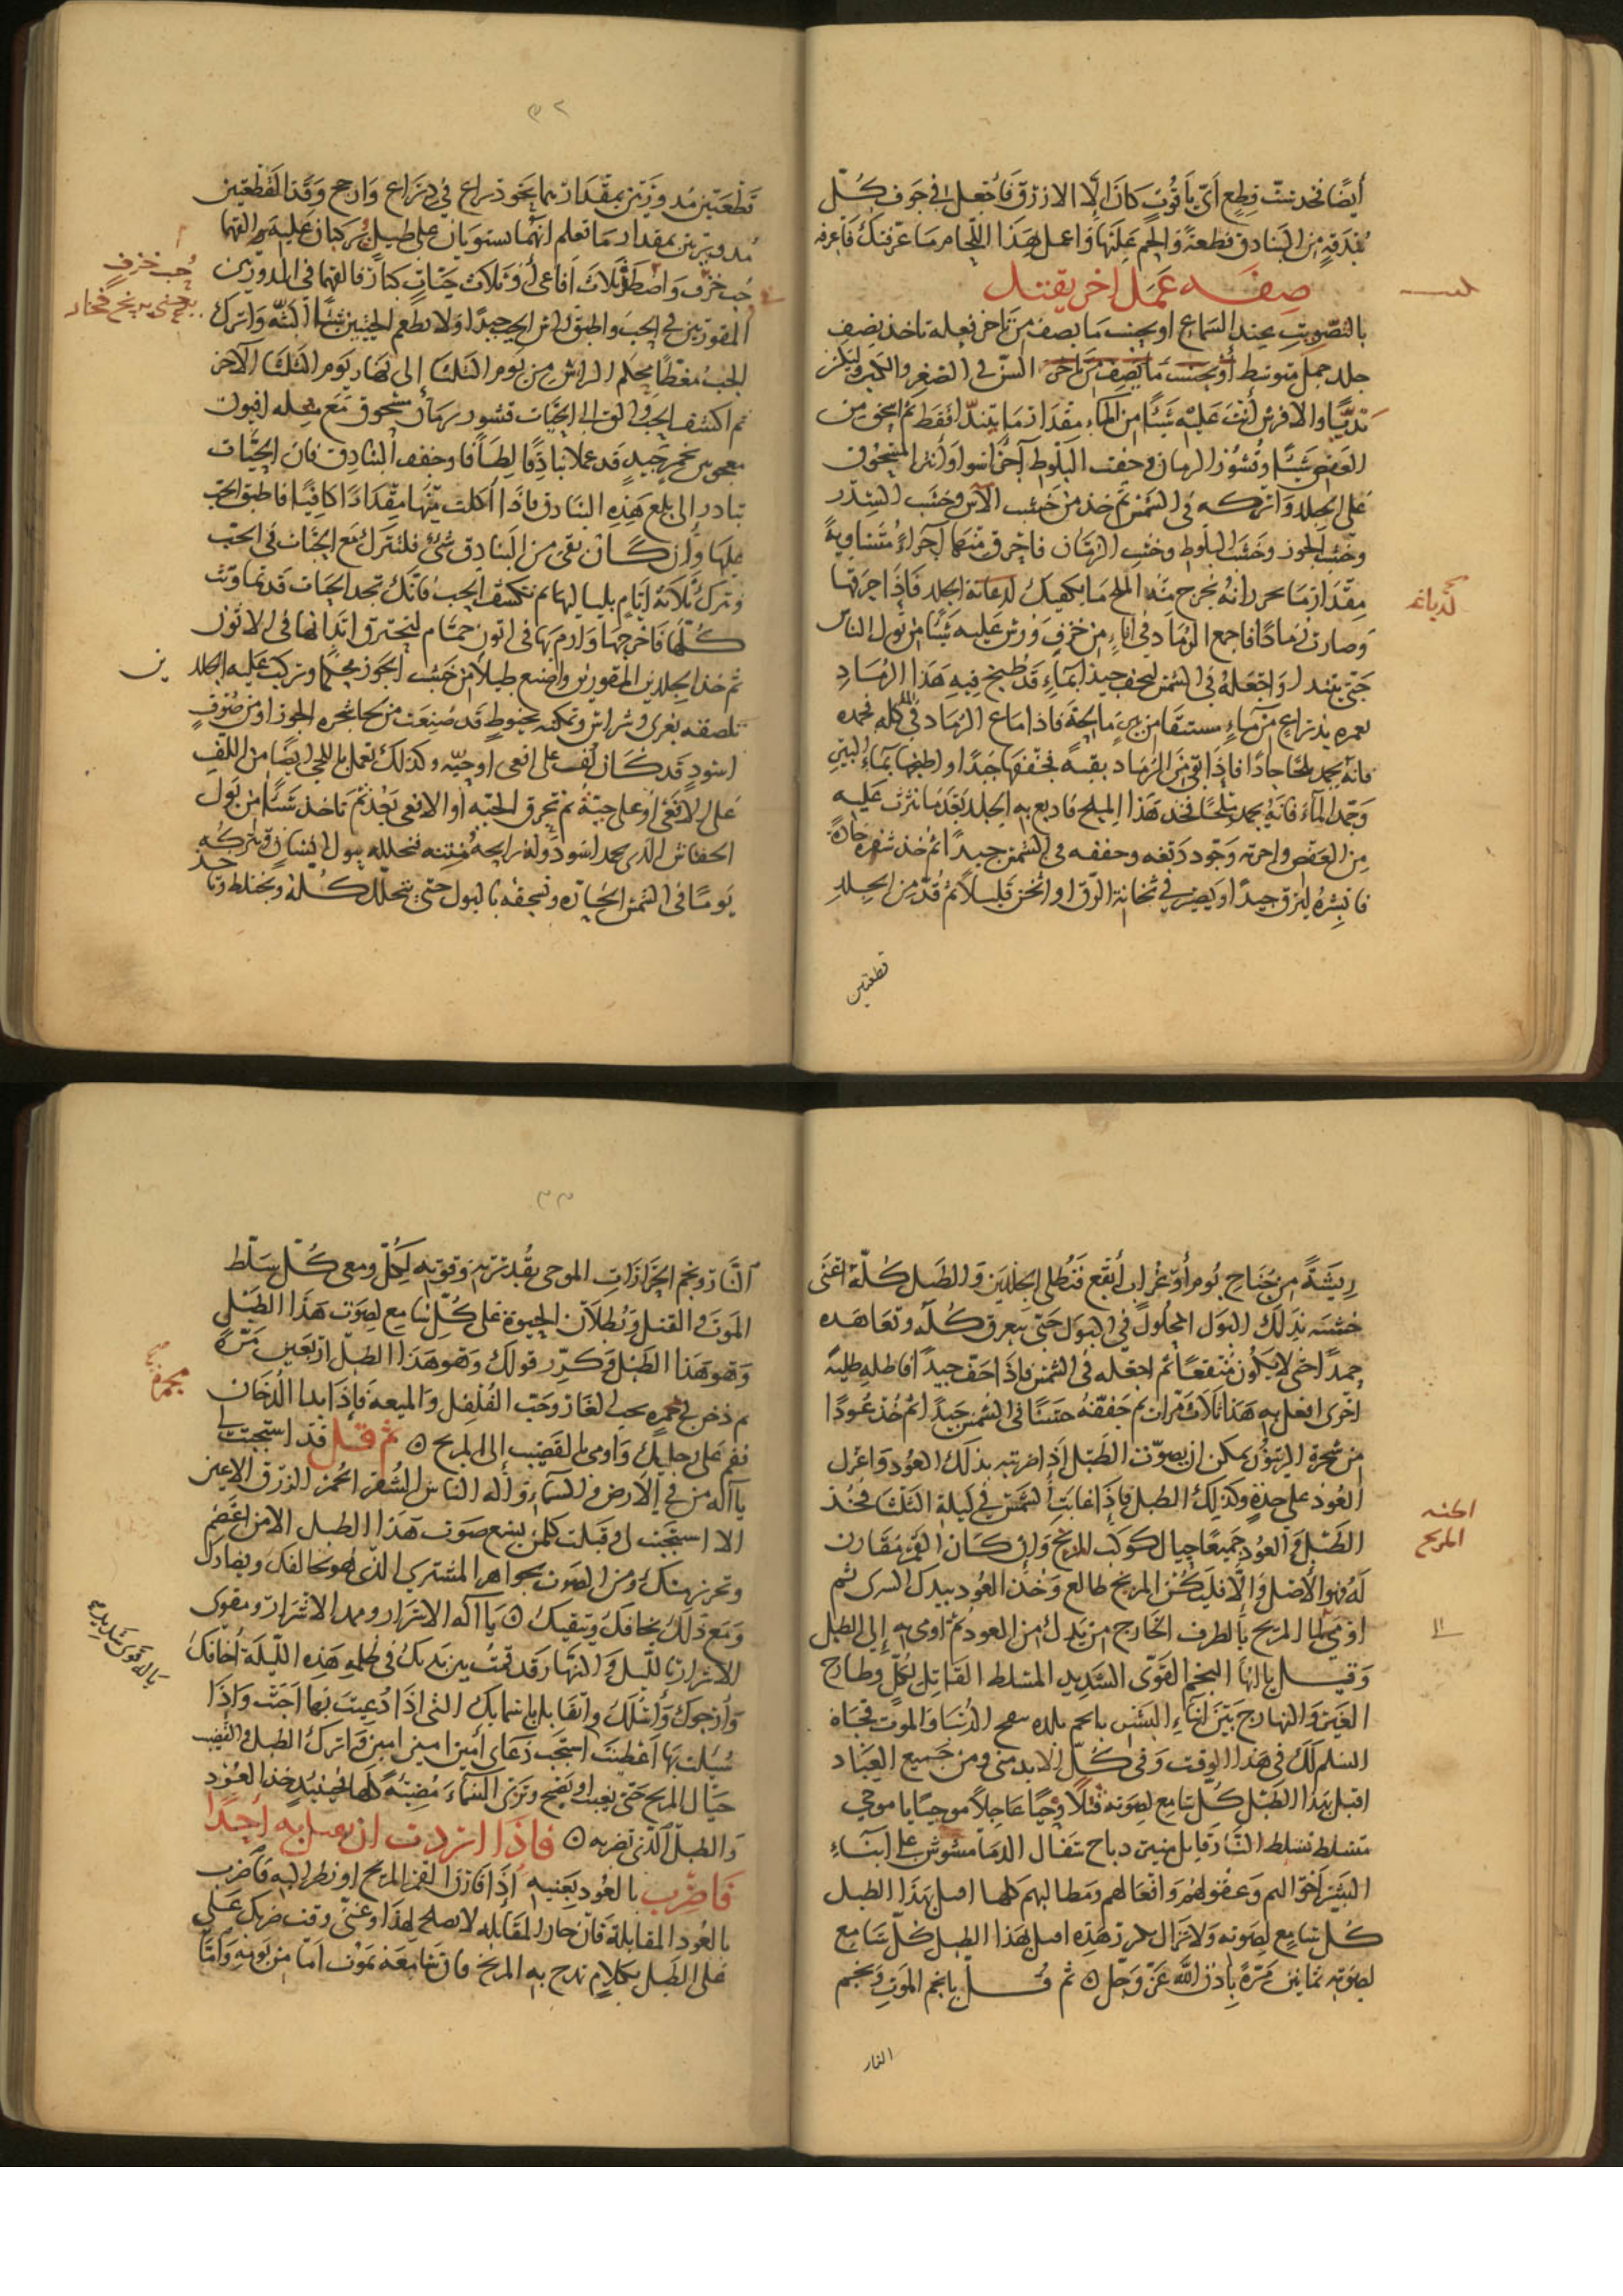 أيضًا فخذ ست قطع أيّ ياقوت كان إلا الازرق فاجعل في جوف كلّ
بندقة من البنادق قطعة والحم عليها واعمل هذا اللجام ما عرفتك فاعرفه
صفة عمل اخر يقتل
بالتصويت عند السماع او بحسب ما يصف من تاخر فعله تاخذ نصف
جلد جمل متوسط أو بحسب ما يصف من تاخر السنّ في الصغر والكبر وليكن
نديًّا والا فرش أنت عليه شيئًا من الماء مقدار ما يتندّا فقط ثم اسحق من
العفص شيئا وقشور الرمان وجفت البلوط أجزا سوا وأنثر المسحوق
على الجلد واتركه في الشمس ثم خذ من خشب الآس وخشب السدر
وخشب الجوز وخشب البلوط وخشب الرمان فاحرق منهما آجراءً متساوية
مقدار ما تحرز انه يخرج منه الملح ما يكفيك لدباغة الجلد فاذا احرقتها
وصارت رمادًا فاجمع الرماد في اناءٍ من خزف ورش عليه شيئًا من بول الناس
حتى يتندا واجعله في الشمس ليجف جيدًا بماءٍ قد طبخ فيه هذا الرماد
يغمره بذراع من ماءٍ مستقا من بئر مالحة فاذا ماع الرماد في الماء كله فجمده
فانه يجمد ملحًا جادًا فاذا بقي من الرماد بقية فجففها جيدًا واطبخها بماء البئر
وجمد الماء فانه يجمد ملحًا فخذ هذا الملح فادبغ به الجلد بعد ما نثرت عليه
من العفص واخوته وجوّد دبغه وجففه في الشمس جيدًا ثم خذ شفرة حادة
فابشره ليرق جيدًا ويصير في ثخانة الرق او اثخن قليلًا ثم قدّ من الجلد
قطعتين
لدباغه
٣٢
قطعتين مدورتين بمقدار ما يكون ذراع في ذراع وارجح وقد القطعتين
مدورتين بمقدار ما تعلم انهما يستويان على طبل يركبان عليه والقهما
جب خزف واصطد ثلاث أفاعي أو ثلاث حيّات كبار فالقهما في المدورتين
المقورتين في الجب واطبق راس الجب جيدًا ولا تطعم الحيتين شيئًا البتّة واترك
الجب مغطًا محكم الراس من يوم الثلثا إلى نهار يوم الثلثا الآخر
ثم اكشف الجب والق الى الحيّات قشور رمان مسحوق مع مثله افيون
معجون بخمر جيد قد عملا بنادقًا لطافًا وجفف البنادق فان الحيّات
تبادر إلى بلع هذه البنادق فاذا أكلت منها مقدارًا كافيًا فاطبق الجب
عليها وان كان بقي من البنادق شيء فلتترك مع الحيّات في الجب
وتترك ثلاثة ايام بلياليها ثم تكشف الجب فانك تجد الحيات قد تماوتت
كلها فاخرجها وارم بها في اتون حمّام ليحترق ابدانها في الاتون
ثم خذ الجلدين المقورين واصنع طبلا من خشب الجوز محكما وتركب عليه الجلدين
تلصقه بغرى وشراس وتمكنه بخيوط قد صنعت من لحا شجرة الجوز او من صوف
اسود قد كان لف على افعى او حيّة وكذلك تعمل بالحبل ايضًا من اللف
على الافعى او على حيّة ثم تحرق الحيّة او الافعى بعد ثم تاخذ شيئًا من بول
الخفاش الذي يجمد اسود وله رايحة منتنة فتحلله ببول انسان وتتركه
يومًا في الشمس الحارّه وتسحقه بالبول حتى يتحلل كله ويختلط وتاخذ
جب خزف
يعني برنخ فخار
ريشةً من جناح بوم أو غراب أبقع فتطلي الجلدين والطبل كله اعني
خشبه بذلك البول المحلول في البول حتى يتعرق كله وتعاهده
جيدًا حتى لا يكون منتفعًا ثم اجعله في الشمس فاذا جف جيدًا فاطله طلية
اخرى افعل به هذا ثلاث مرات ثم جففه حسنًا في الشمس جيدًا ثم خذ عودًا
من شجرة الزيتون يمكن ان يصوّت الطبل اذا ضربته بذلك العود واعزل
العود على حدةٍ وكذلك الطبل فاذا غابت الشمس في ليلة الثلثا فخذ
الطبل والعود جميعًا حيال كوكب المريخ وان كان القمر مقارن
له فهو الأفضل والا فليكن المريخ طالع وخذ العود بيدك اليسرى ثم
اومي الى المريخ بالطرف الخارج من يدك من العود ثم اومي به إلى الطبل
وقيل يا ايها النجم القوّى الشديد المسلط القاتل لكلّ وطارح
الغير والنهارج بين ابناء البشر يا نجم بلده سمج الدنيا والموت فجباه
السلم لك في هذا الوقت وفي كلّ الابد مني ومن جميع العباد
اقبل بهذا الطبل كل سامع لصوته قتلًا وحيًا عاجلًا موحيًا يا موحي
متسلط تسلط النار قابل منيتي دباح سفال الدما مشوش على ابناء
البشر احوالهم وعقولهم وافعالهم ومطالبهم كلها اصل بهذا الطبل
كل سامع لصوته ولا تزال تكرر هذه اصل بهذا الطبل كل سامع
لصوته ثمانين مرة باذن الله عز وجل ۞ ثم قل يا نجم الموت ونجم
النار
المريخ
٣٣
النار ونجم الحرارات الموحي بقدرته وقوته لكل ومعى كل سلط
الموت والقتل وبطلان الحيوة على كل سامع لصوت هذا الطبل
وهو هذا الطبل وكرر قولك وهو هذا الطبل اربعين مرة
ثم دخن في مجمرة بحب الغار وحب الفلفل والميعة فاذا بدا الدخان
فقم على رجليك واومي بالقضيب إلى المريخ ۞ ثم قل قد استجبت لي
يا اله من في الارض في السماء واله الناس الشقر الحمر الزرق الاعين
الا استجبت لي وقبلت كل من يسمع صوت هذا الطبل الا من اعتصم
وتحرز منك ومن الصوت بجواهر المشتري الذي هو يخالفك ويضادك
ومع ذلك يخافك ويتقيك ۞ يا اله الاشرار وممد الاشرار ومقوى
الاشرار بالليل والنهار قد قمت بين يديك في ظلمة هذه الليلة أخافك
وأرجوك وأسئلك واتقابل باسمايك التي اذا دعيت بها اجبت واذا
سئلت بها اعطيت استجب دعاي أمين امين امين واترك الطبل والقضيب
حيال المريخ حتى يغيب او يصبح وترى السماء مضيئة كلها فحينئذٍ خذ العود
والطبل الذي تضربه ۞ فاذا اردت ان تعمل به أحدًا
فاضرب بالعود بعينيه اذا قارن القمر المريخ او نظر اليه فاضرب
بالعود المقابلة فان حان المقابلة لا يصلح لهذا وغنّى وقت ضربك على
على الطبل بكلام تمدح به المريخ فان سامعه يموت اما من يومه واما
مجمره
يا له قوى شديده